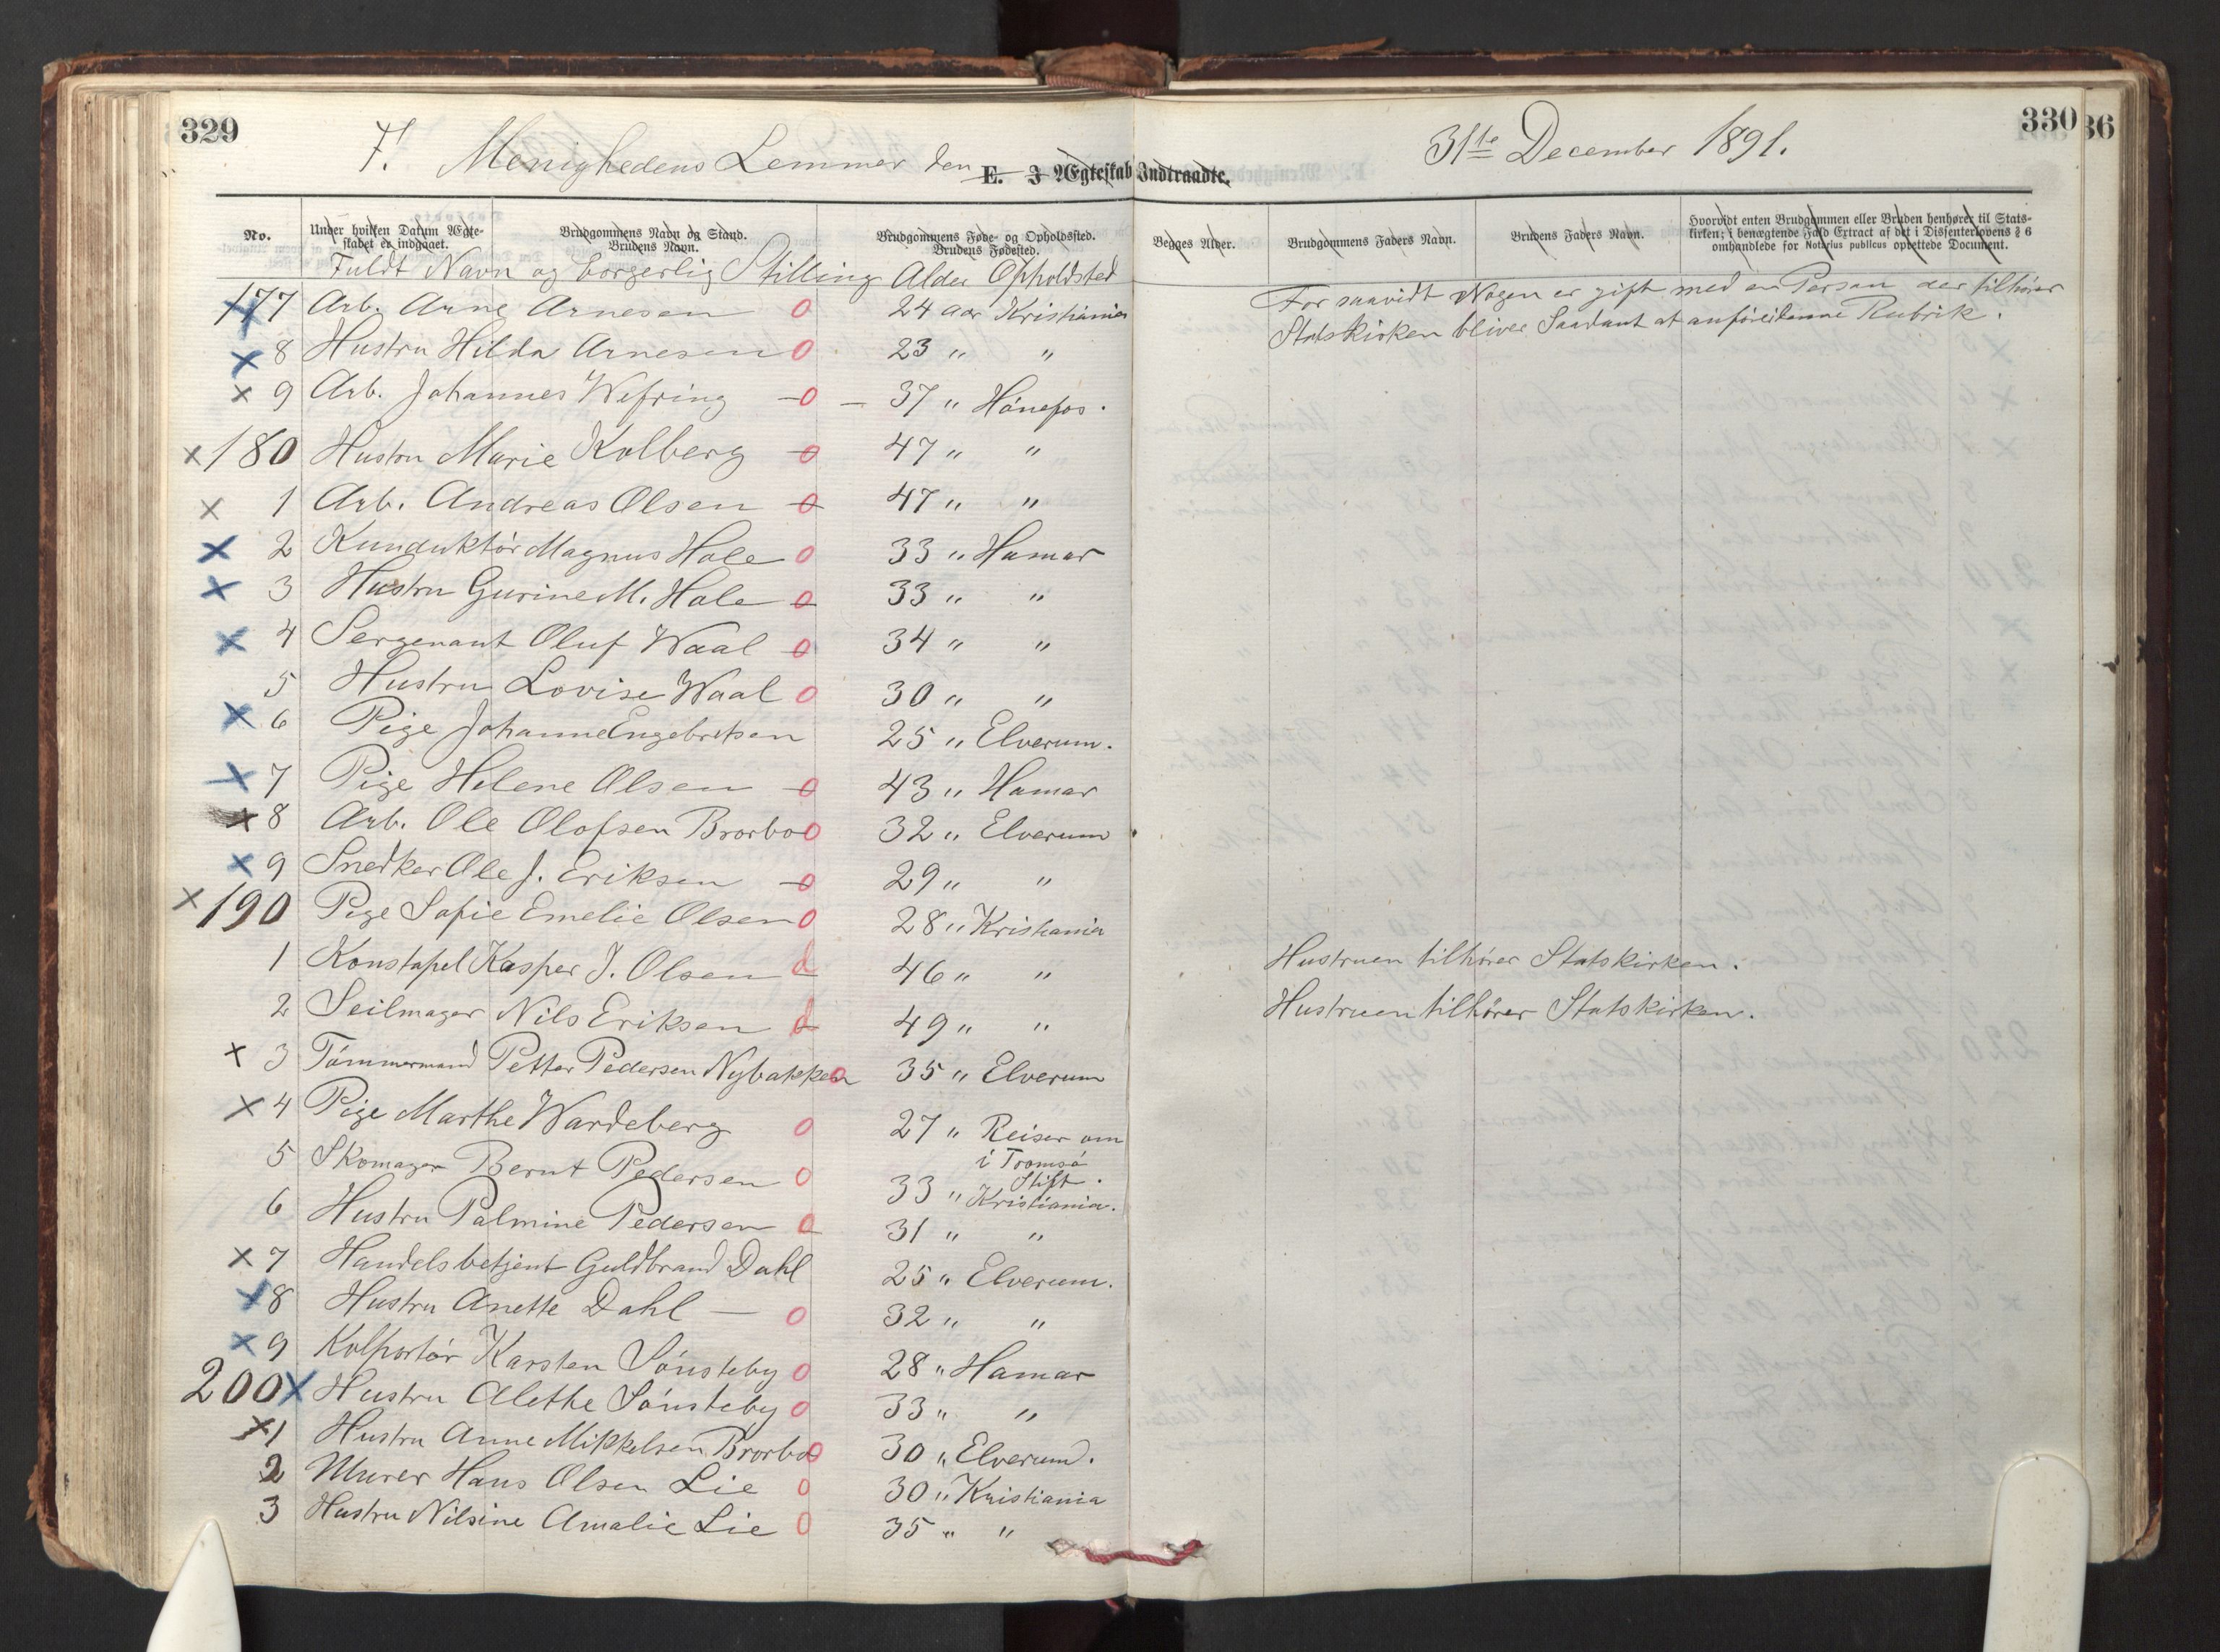 329
F. Menighedens Lemmer den 31te December 1891.
330
36
E. I Ægteskab Indtraadte.
No.
Under hvilken Datum Ægteskabet er indgaaet.
Brudgommens Navn og Stand. Brudens Navn.
Brudgommens Føde- og Opholdssted. Brudens Fødested.
Begges Alder.
Brudgommens Faders Navn.
Brudens Faders Navn.
Hvorvidt enten Brudgommen eller Bruden henhører til Stats-
kirken; i benægtende Fald Extract af det i Dissenterlovens § 6
omhandlede for Notarius publicus oprettede Document.
Fuldt Navn og borgerlig Stilling Alder Opholdsted
For saavidt Nogen er gift med en Person der tilhører
Statskirken bliver Saadant at anføre i denne Rubrik.
177 Arb. Arne Arnesen 0 24 aar Kristiania
x 8 Hustru Hilda Arnesen 0 23 " "
x 9 Arb. Johannes Wefring - 0 - 37 " Hönefos.
x 180 Hustru Marie Kolberg 0 47 " "
x 1 Arb. Andreas Olsen 0 47 " "
x 2 Kunduktör Magnus Hole 0 33 " Hamar
x 3 Hustru Gurine M. Hole 0 33 " "
x 4 Sergenant Oluf Waal 0 34 " "
5 Hustru Lovise Waal 0 30 " "
x 6 Pige Johanne Engebretsen 25 " Elverum.
x 7 Pige Helene Olsen 0 43 " Hamar
x 8 Arb. Ole Olofsen Brorbo 0 32 " Elverum
x 9 Snedker Ole J. Eriksen 0 29 " "
x 190 Pige Sofie Emelie Olsen 0 28 " Kristiania
1 Konstapel Kasper J. Olsen d 46 " " Hustruen tilhører Statskirken.
2 Seilmager Nils Eriksen d 49 " " Hustruen tilhører Statskirken.
x 3 Tömmermand Petter Pedersen Nybakken 0 35 " Elverum
x 4 Pige Marthe Wardeberg 0 27 " Reiser om
i Tromsö
Stift.
5 Skomager Bernt Pedersen 0 33 " Kristiania.
6 Hustru Palmine Pedersen 0 31 " "
x 7 Handelsbetjent Guldbrand Dahl 25 " Elverum.
x 8 Hustru Anette Dahl - 0 32 " "
x 9 Kolportör Karsten Sönsteby 0 28 " Hamar
200 x Hustru Alethe Sönsteby 0 33 " "
x 1 Hustru Anne Mikkelsen Brorbo 0 30 " Elverum.
2 Murer Hans Olsen Lie 0 30 " Kristiania
3 Hustru Nilsine Amalie Lie 0 35 " "